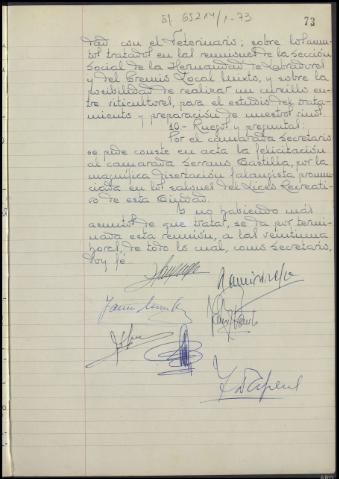 73
dad con el Veterinario; sobre los asun-
tos tratados en las reuniones de la Sección
Social de la Hermandad de Labradores
y del Gremio Local Mixto, y sobre la
posibilidad de realizar un cursillo en-
tre viticultores, para el estudio del trata-
miento y preparación de nuestros vinos.
10.- Ruegos y preguntas:
Por el camarada Secretario
se pide conste en acta la felicitación
al camarada Serrano Castilla, por la
magnífica disertación falangista pronun-
ciada en los salones del Liceo Recreati-
vo de esta Ciudad.
Y no habiendo más
asuntos de que tratar, se da por termi-
nada esta reunión, a las veintiuna
horas de todo lo cual, como Secretario,
doy fé.